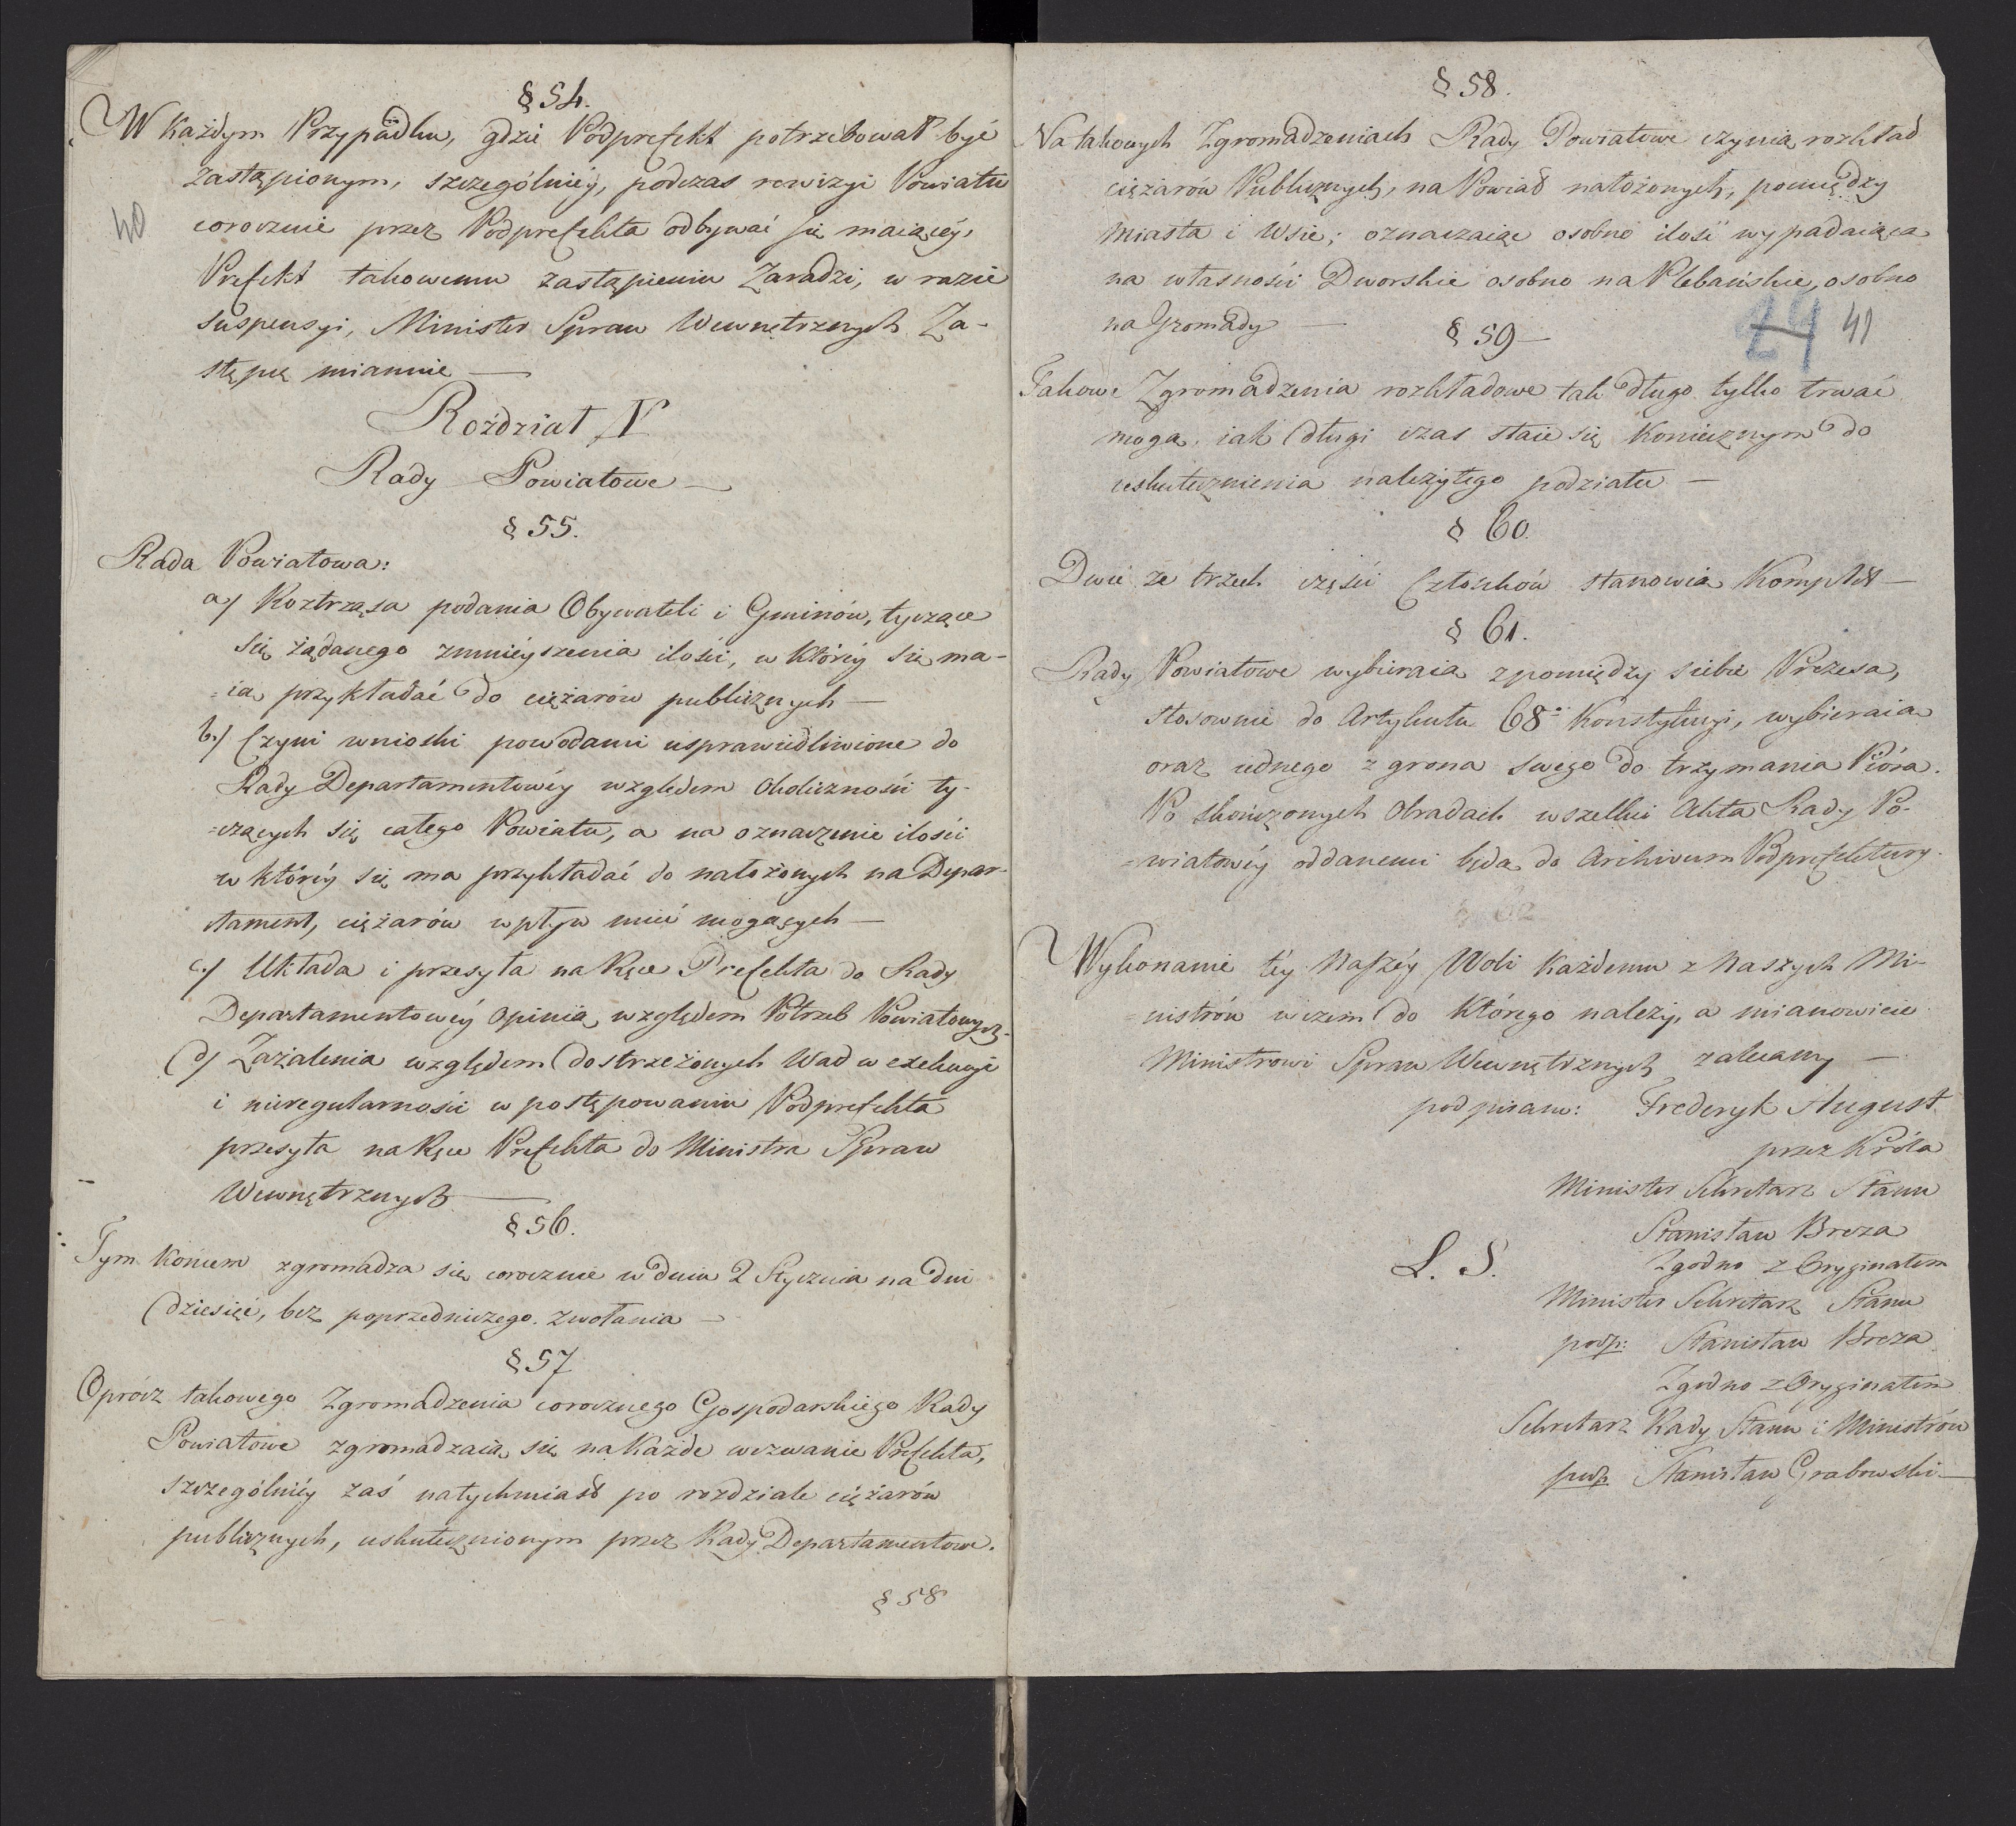 § 54.
W Każdym Przypadku, gdzie Podprefekt potrzebował być
zastąpionym, szczególniéy, podczas rewizyi Powiatu
corocznie przez Podprefekta odbywać się maiącéy,
40
Prefekt takowemu zastąpieniu Zaradzi, w razie
suspensyi, Minister Spraw Wewnętrznych Za-
stępcę mianuie —
Rozdział V
Rady Powiatowe —
§ 55.
Rada Powiatowa:
a/ Roztrząsa podania Obywateli i Gminów, tyczące
się żądanego zmniéyszenia ilości, w któréy się ma-
=ią przykładać do ciężarów publicznych —
b./ Czyni wnioski powodami usprawiedliwione do
Rady Departamentowéy względem Okoliczności ty-
=czących się całego Powiatu, a na oznaczenie ilości
w któréy się ma przykładać do nałożonych na Depar-
tament, ciężarów wpływ mieć mogących —
c./ Układa i przesyła na Ręce Prefekta do Rady
Departamentowéy Opinią względem Potrzeb Powiatowych.
d/ Zażalenia względem dostrzeżonych Wad w exekucyi
i nieregularności w postępowaniu Podprefekta
przesyła na Ręce Prefekta do Ministra Spraw
Wewnętrznych —
§ 56.
Tym Końcem zgromadza się corocznie w dniu 2 Stycznia na dni
dziesięć, bez poprzedniczego zwołania —
§ 57
Oprócz takowego Zgromadzenia corocznego Gospodarskiego Rady
Powiatowe zgromadzaią się na Każde wezwanie Prefekta,
szczególniéy zaś natychmiast po rozdziale ciężarów
publicznych, uskutecznionym przez Rady Departamentowe.
§ 58
§ 58.
Na takowych Zgromadzeniach Rady Powiatowe czynią rozkład
ciężarów Publicznych, na Powiat nałożonych, pomiędzy
Miasta i Wsie; oznaczaiąc osobno ilość wypadaiącą
na własności Dworskie osobno na Plebańskie, osobno
na Gromady —
29 41
§ 59 —
Takowe Zgromadzenia rozkładowe tak długo tylko trwać
mogą, iak długi czas staie się Koniecznym do
uskutecznienia należytego podziału —
§ 60.
Dwie ze trzech części Członków stanowią Komplet —
§ 61.
Rady Powiatowe wybieraią z pomiędzy siebie Prezesa,
stosownie do Artykułu 68º Konstytucyi, wybieraią
oraz iednego z grona swego do trzymania Pióra.
Po skończonych Obradach wszelkie Akta Rady Po-
=wiatowéy oddanemi będą do Archivum Podprefektury.
§ 62
Wykonanie téy Naszéy Woli Każdemu z Naszych Mi-
=nistrów w czem do Którego należy, a mianowicie
Ministrowi Spraw Wewnętrznych zalecamy —
podpisano: Frederyk August
przez Króla
Minister Sekretarz Stanu
Stanisław Breza
L. S.
Zgodno z Oryginałem
Minister Sekretarz Stanu
podp: Stanisław Breza
Zgodno z Oryginałem
Sekretarz Rady Stanu i Ministrów
podp Stanisław Grabowski —